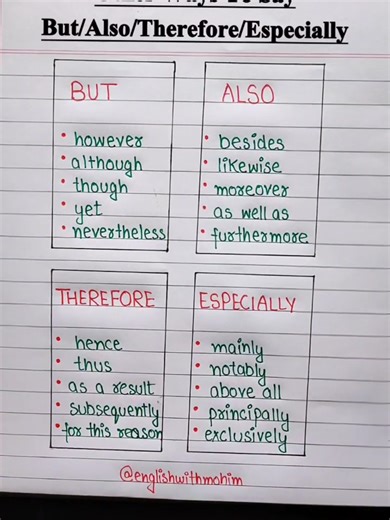 But/Also/Therefore/Especially
BUT
• however
• although
• though
• yet
• nevertheless
ALSO
• besides
• likewise
• moreover
• as well as
• furthermore
THEREFORE
• hence
• thus
• as a result
• subsequently
• for this reason
ESPECIALLY
• mainly
• notably
• above all
• principally
• exclusively
@englishwithmohim